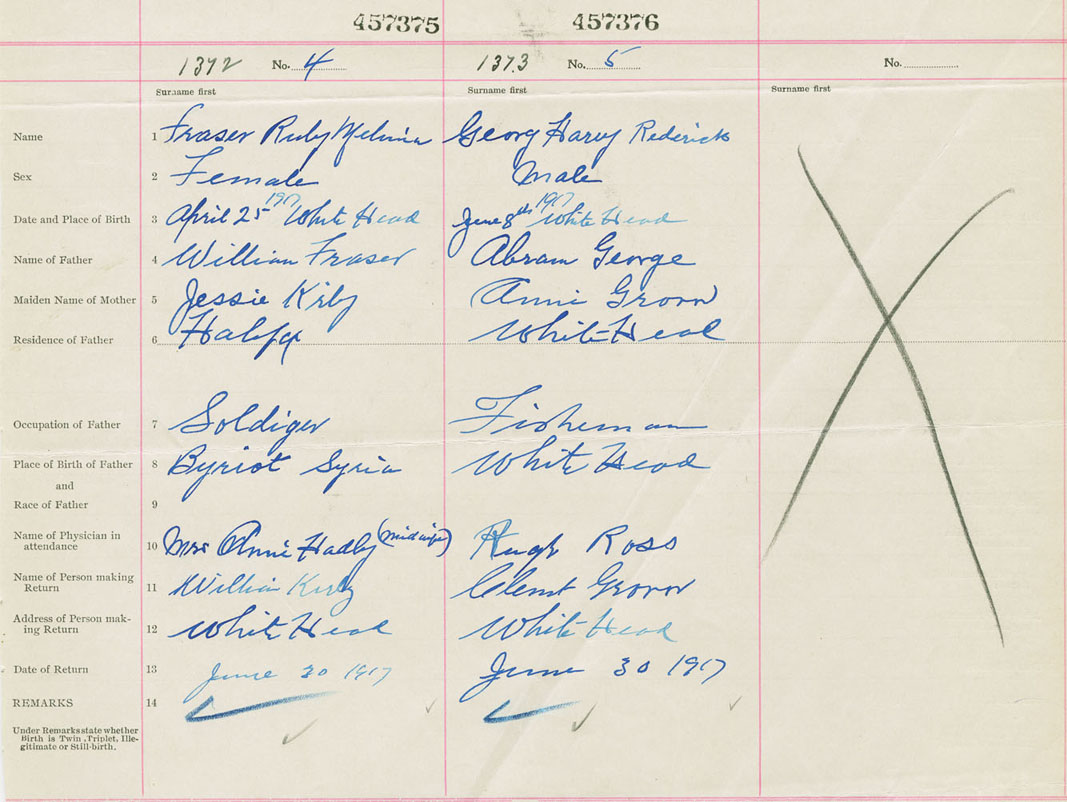 457375 457376
1372 No. 4 1373 No. 5 No.
Surname first Surname first Surname first
Name 1 Fraser Ruby Melvina Georg Harvy Rederick
Sex 2 Female Male
Date and Place of Birth 3 April 25 1917 White Head June 8th 1917 White Head
Name of Father 4 William Fraser Abram George
Maiden Name of Mother 5 Jessie Kirby Annie
Residence of Father 6 White Head
Occupation of Father 7 Soldiger Fisheman
Place of Birth of Father 8 Byriot Syria White Head
and
Race of Father 9
Name of Physician in
attendance 10 Mrs Annie Hadley (midwife) Hugh Ross
Name of Person making
Return 11 William Kirby Clemt
Address of Person mak-
ing Return 12 White Head White Head
Date of Return 13 June 30 1917 June 30 1917
REMARKS 14
Under Remarks state whether
Birth is Twin, Triplet, Ille-
gitimate or Still-birth.